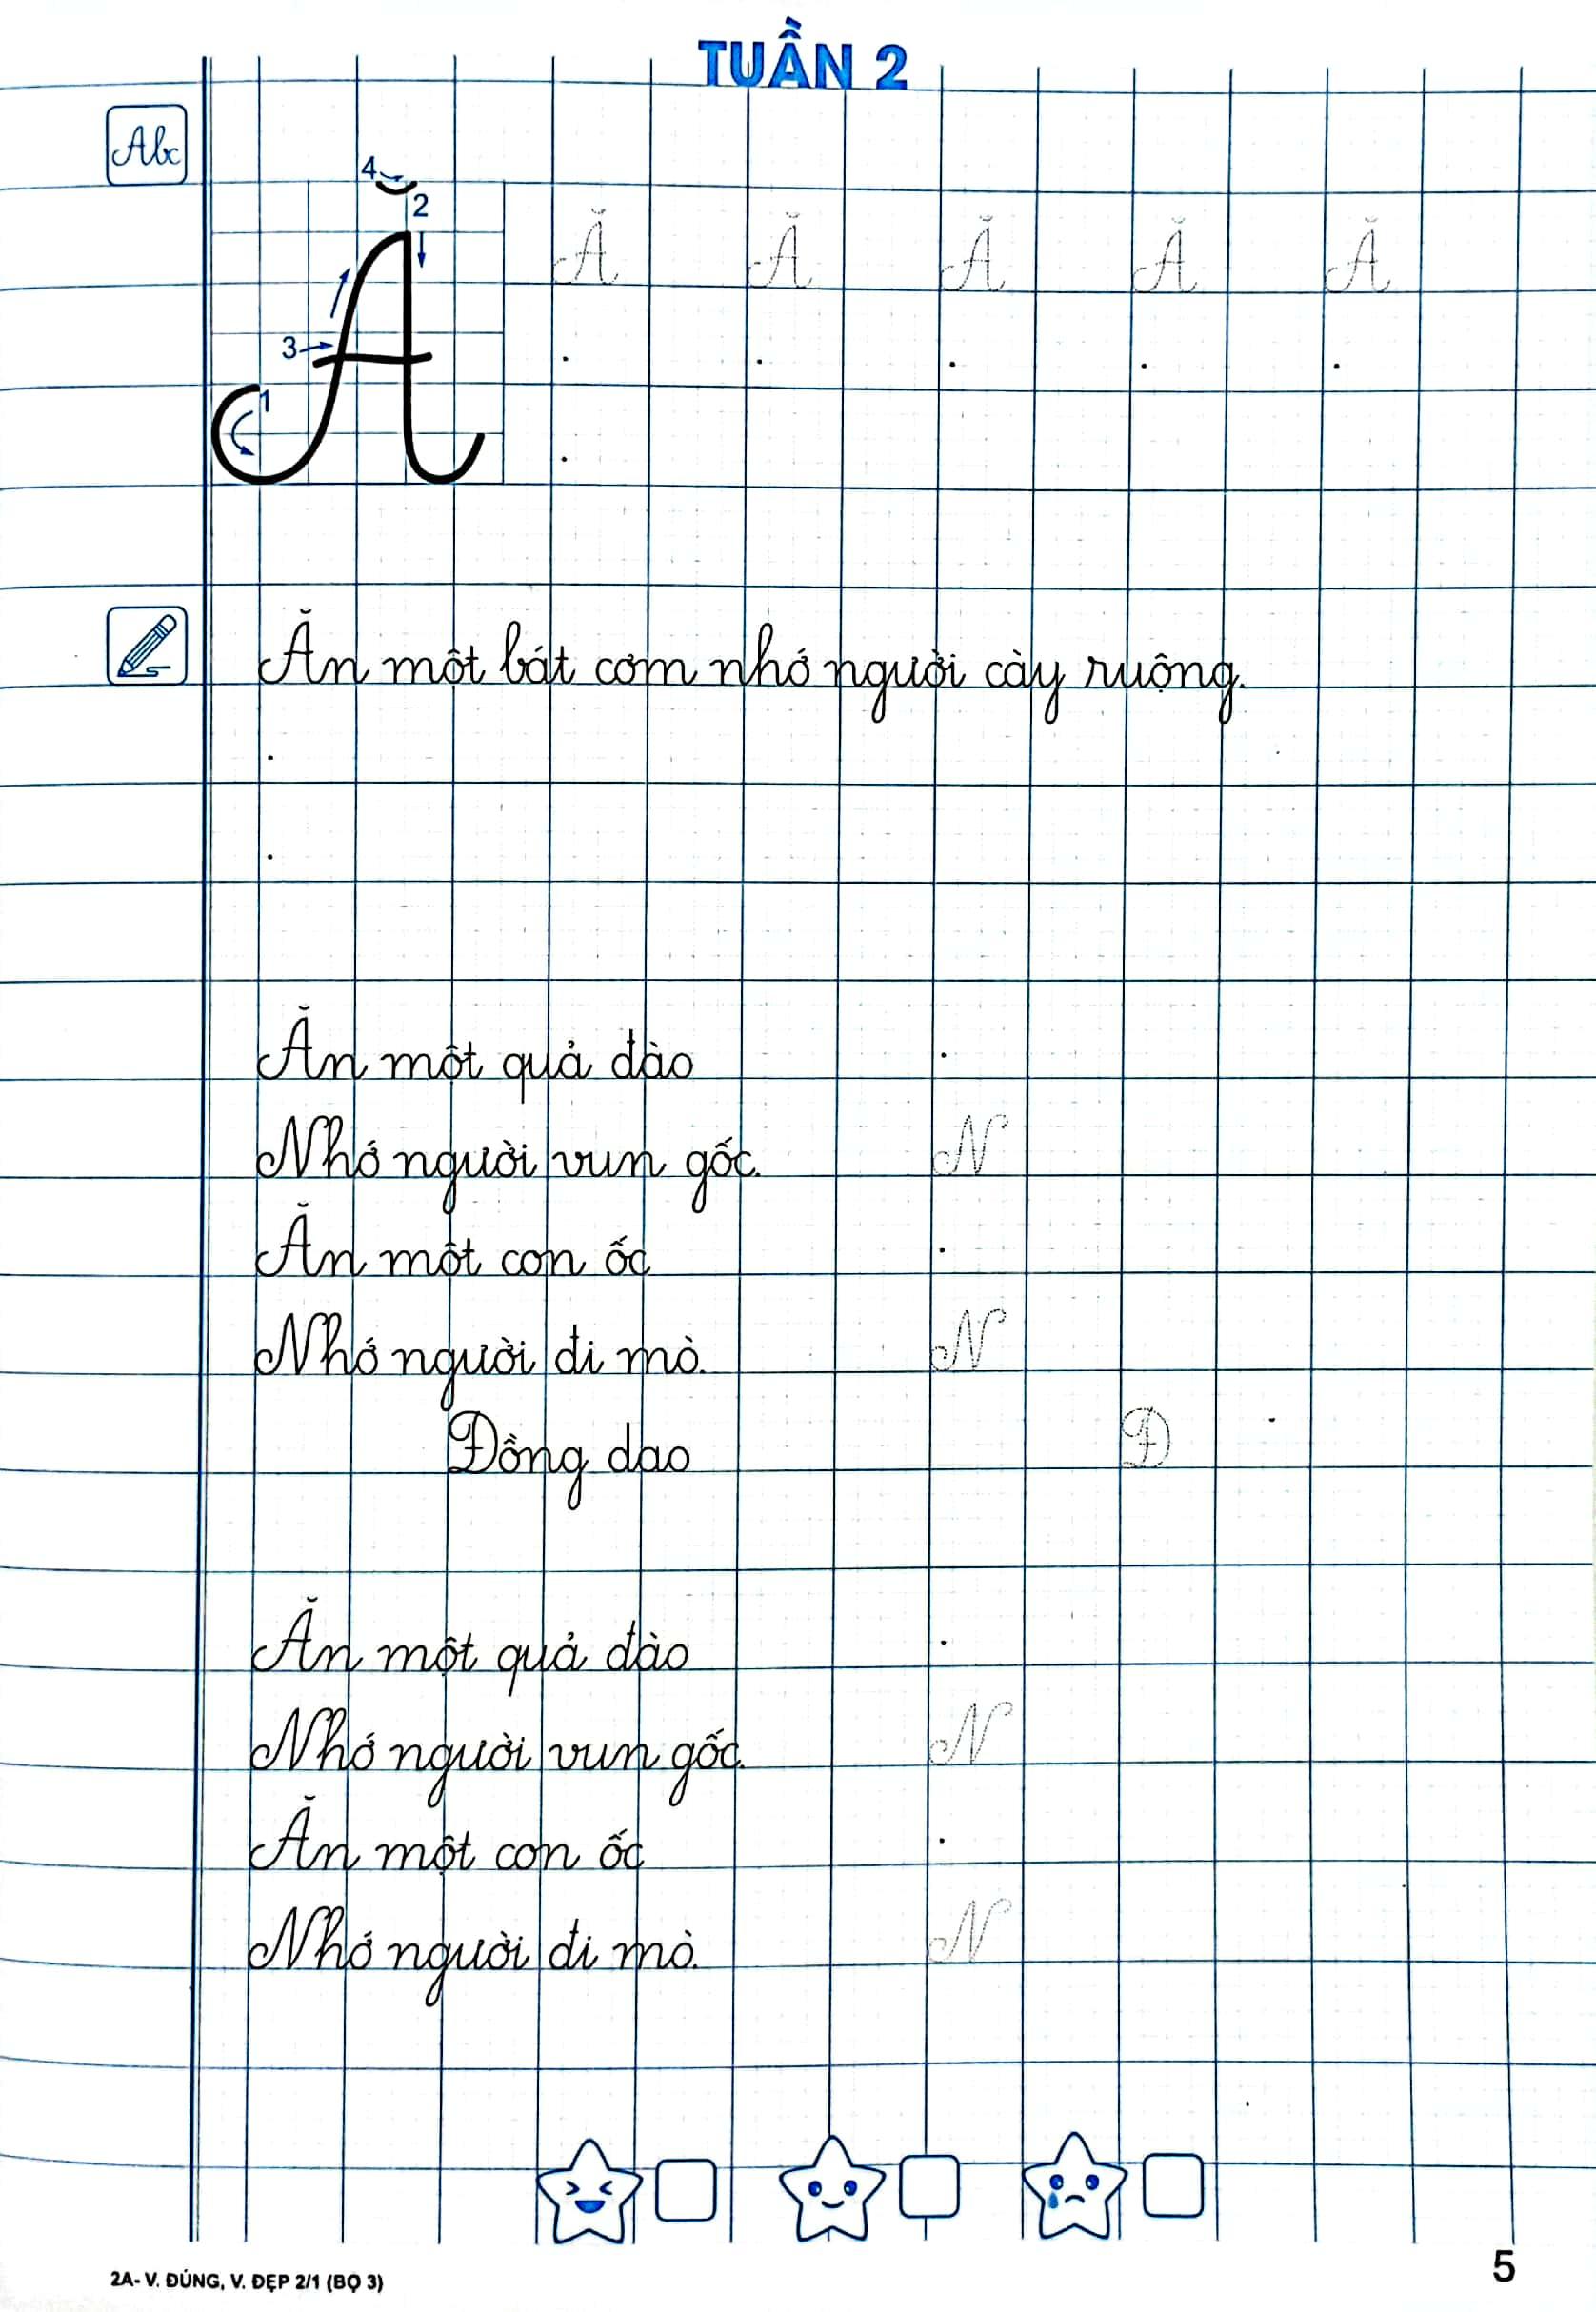 TUẦN 2
Abc
4
2
Ă Ă Ă Ă Ă Ă
3
1
Ăn một bát cơm nhớ người cày ruộng.
Ăn một quả đào
Nhớ người vun gốc. N
Ăn một con ốc
Nhớ người đi mò. N
Đồng dao Đ
Ăn một quả đào
Nhớ người vun gốc. N
Ăn một con ốc
Nhớ người đi mò. N
5
2A- V. ĐÚNG, V. ĐẸP 2/1 (BỌ 3)